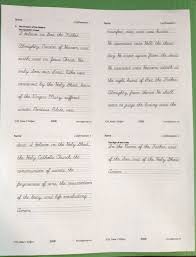 I believe in God, the Father
Almighty, Creator of heaven and
earth, and in Jesus Christ, His
only Son, our Lord, Who was
conceived by the Holy Ghost, born
of the Virgin Mary, suffered
under Pontius Pilate, was
crucified, died, and was buried.
He descended into Hell; the third
day He rose again from the dead;
He ascended into heaven, sitteth at
the right hand of God, the Father
Almighty; from thence He shall
come to judge the living and the
dead. I believe in the Holy Ghost,
the Holy Catholic Church, the
communion of saints, the
forgiveness of sins, the resurrection
of the body, and life everlasting.
Amen.
In the Name of the Father, and
of the Son, and of the Holy Ghost.
Amen.